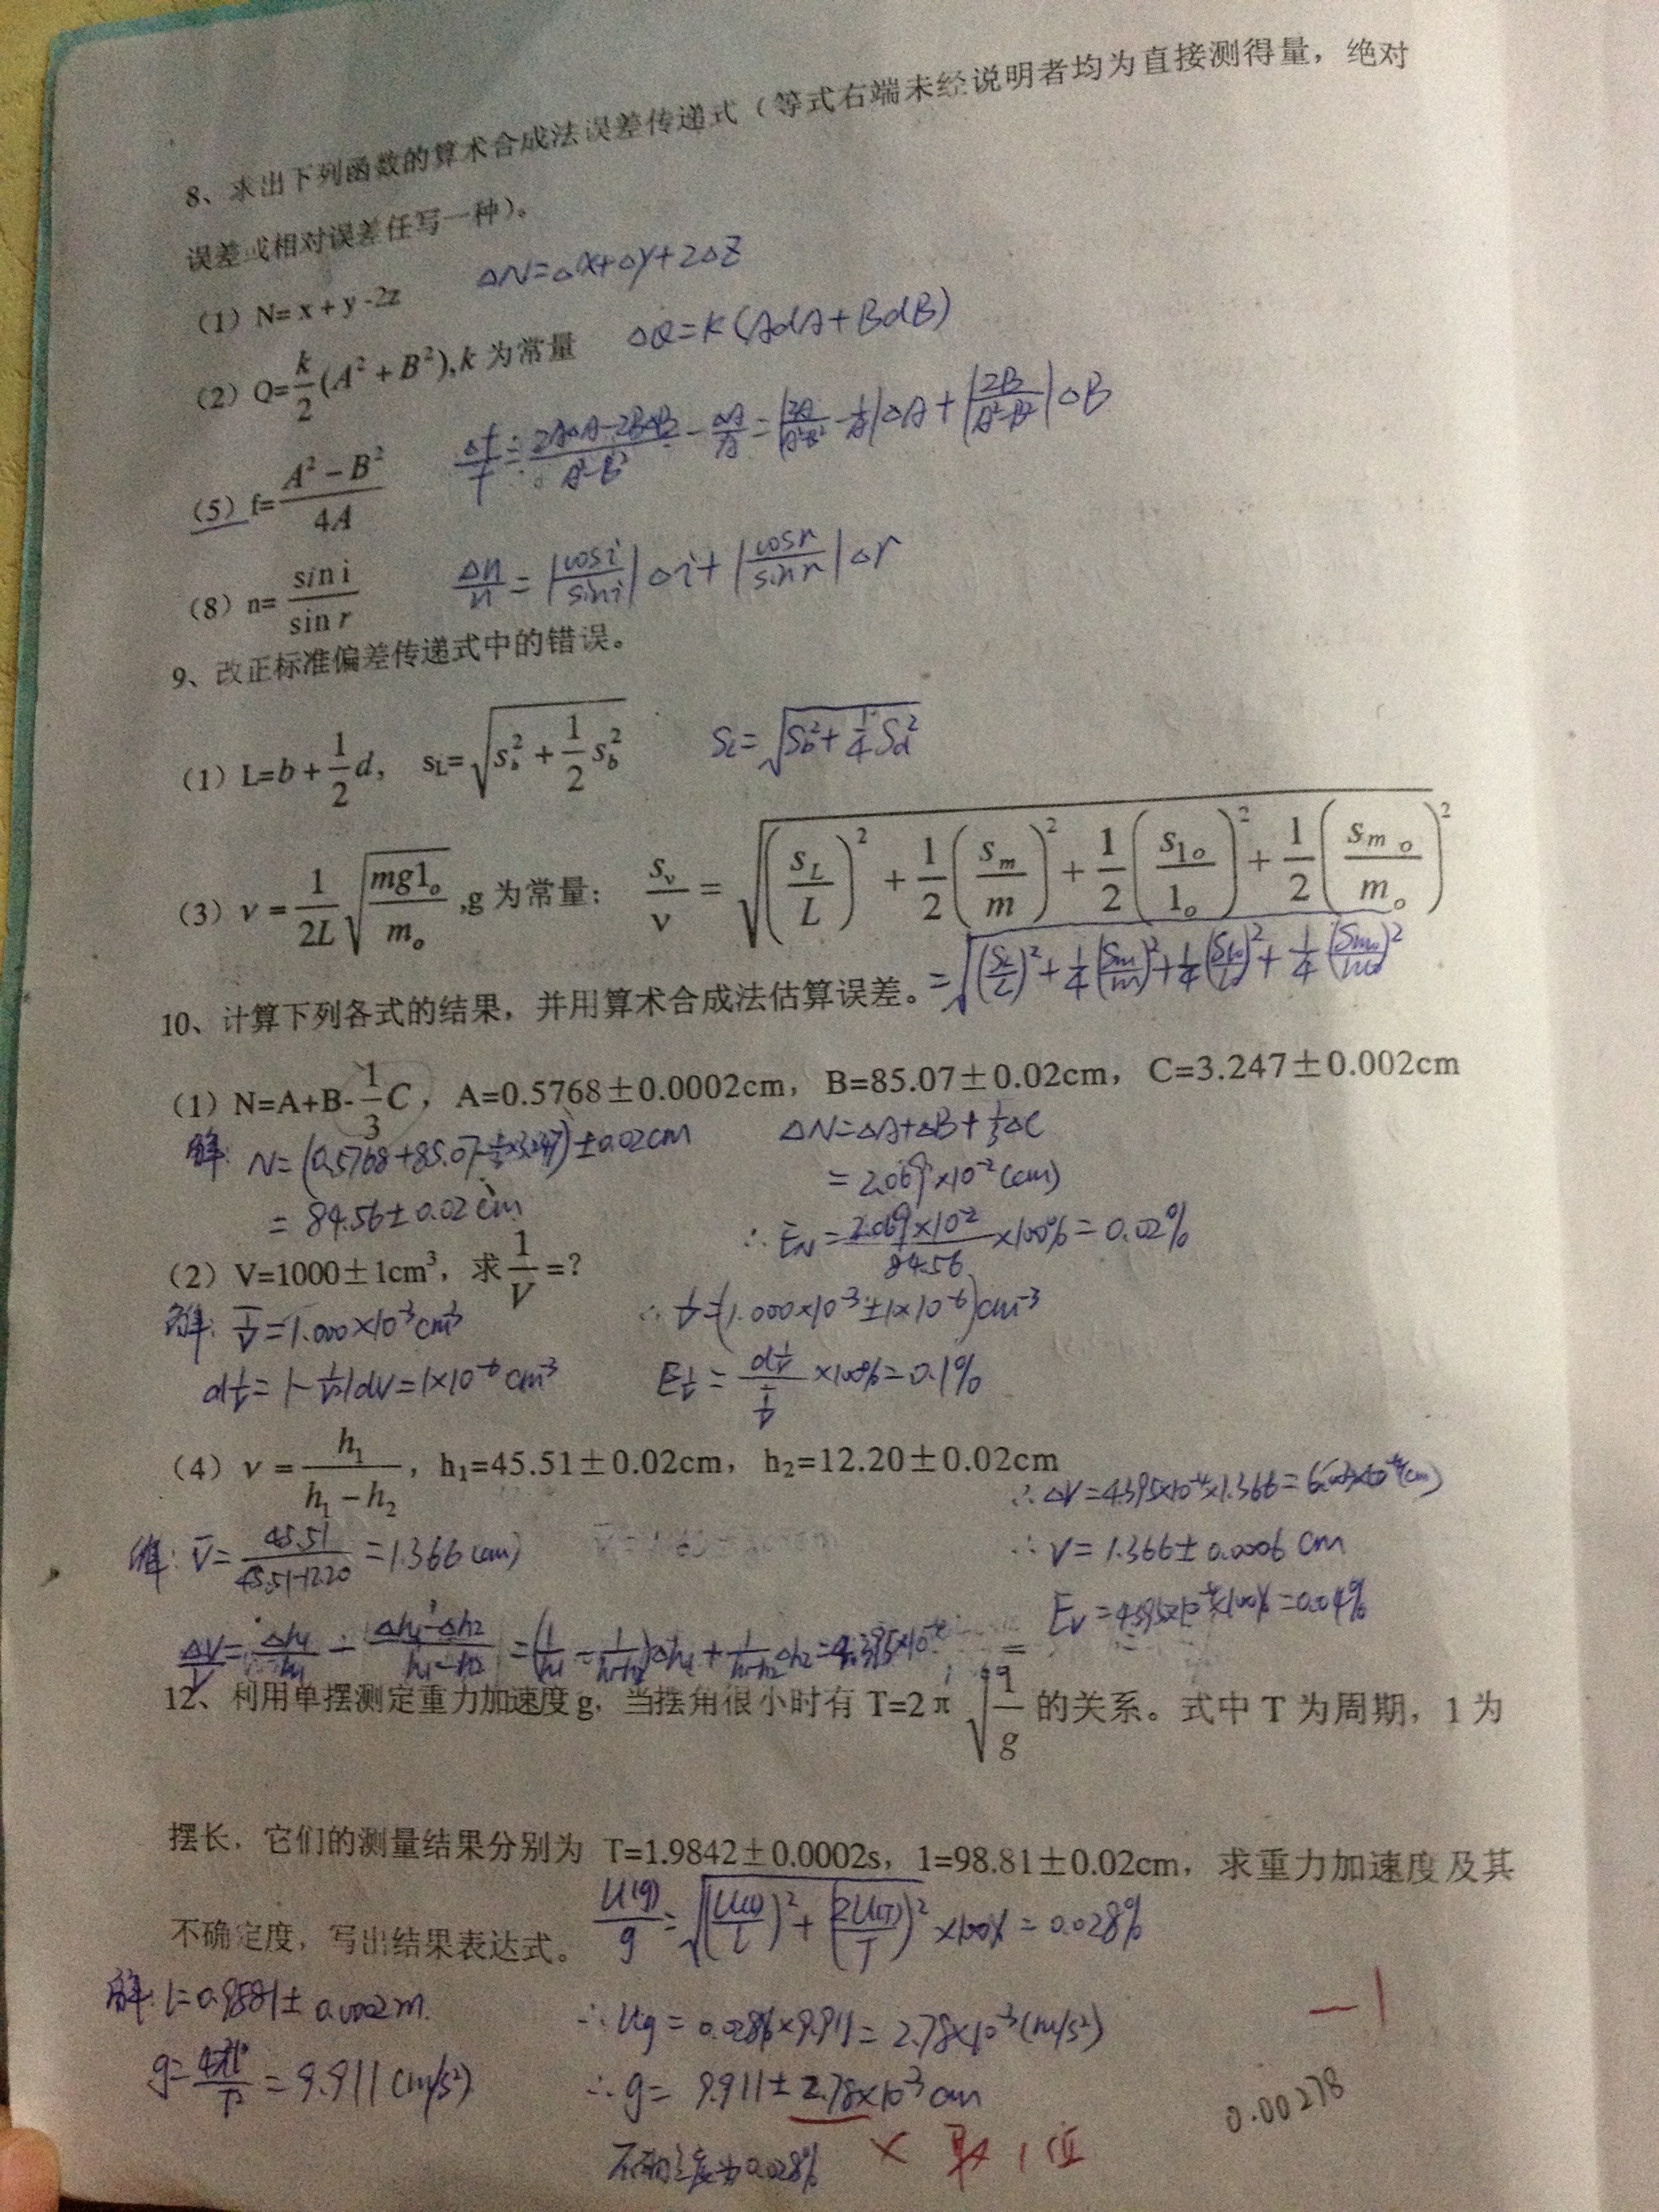 8、求出下列函数的算术合成法误差传递式（等式右端未经说明者均为直接测得量，绝对
误差或相对误差任写一种）。
（1）N= x + y -2z  ΔN=Δx+Δy+2Δz
（2）Q=k/2(A²+B²),k 为常量  ΔQ=k(AdA+BdB)
（5）f=(A²−B²)/4A  Δf/f=(2AΔA−2BΔB)/(A²−B²) − ΔA/A=|2A/(A²−B²) − 1/A|ΔA+|2B/(A²−B²)|ΔB
（8）n= sin i/sin r  Δn/n=|cosi/sini|Δi+|cosr/sinr|Δr
9、改正标准偏差传递式中的错误。
（1）L=b+1/2 d， s_L=√(s_b²+1/2 s_b²)  S_L=√(S_b²+1/4 S_d²)
（3）ν=1/2L √(mgl₀/m₀) ,g 为常量； s_ν/ν=√((s_L/L)²+1/2(s_m/m)²+1/2(s_l₀/l₀)²+1/2(s_m₀/m₀)²)
=√((S_L/L)²+1/4(S_m/m)²+1/4(S_l₀/l₀)²+1/4(S_m₀/m₀)²)
10、计算下列各式的结果，并用算术合成法估算误差。
（1）N=A+B-1/3 C，A=0.5768±0.0002cm，B=85.07±0.02cm，C=3.247±0.002cm
解: N=(0.5768+85.07-1/3×3.247)±0.02cm  ΔN=ΔA+ΔB+1/3ΔC
=84.56±0.02cm  =2.069×10⁻²(cm)
∴ E_N=2.069×10⁻²/84.56×100%=0.02%
（2）V=1000±1cm³，求1/V=?
解: 1/V=1.000×10⁻³cm⁻³  ∴ 1/V=(1.000×10⁻³±1×10⁻⁶)cm⁻³
d1/V=|-1/V²|dV=1×10⁻⁶cm⁻³  E1/V=d1/V / 1/V ×100%=0.1%
（4）ν=h₁/(h₁−h₂)，h₁=45.51±0.02cm，h₂=12.20±0.02cm
∴ ΔV=4.395×10⁻⁴×1.366=
解: V̄=45.51/(45.51-12.20)=1.366(cm)  ∴ V=1.366±0.0006 cm
E_V=4.395×10⁻⁴×100%=0.04%
ΔV/V=Δh₁/h₁ − (Δh₁−Δh₂)/(h₁−h₂)=(1/h₁ − 1/(h₁−h₂))Δh₁+1/(h₁−h₂)Δh₂=4.395×10⁻⁴
12、利用单摆测定重力加速度 g，当摆角很小时有 T=2π√(1/g) 的关系。式中 T 为周期，1 为
摆长，它们的测量结果分别为 T=1.9842±0.0002s，1=98.81±0.02cm，求重力加速度及其
不确定度，写出结果表达式。 U(g)/g=√((U(l)/l)²+(2U(T)/T)²)×100%=0.028%
解: l=0.9881±0.0002m.
∴ Ug=0.028%×9.911=2.78×10⁻³(m/s²)
g=4π²l/T²=9.911(m/s²)
∴ g=9.911±2.78×10⁻³cm
不确定度为0.028%
× 取1位
—1
0.00278